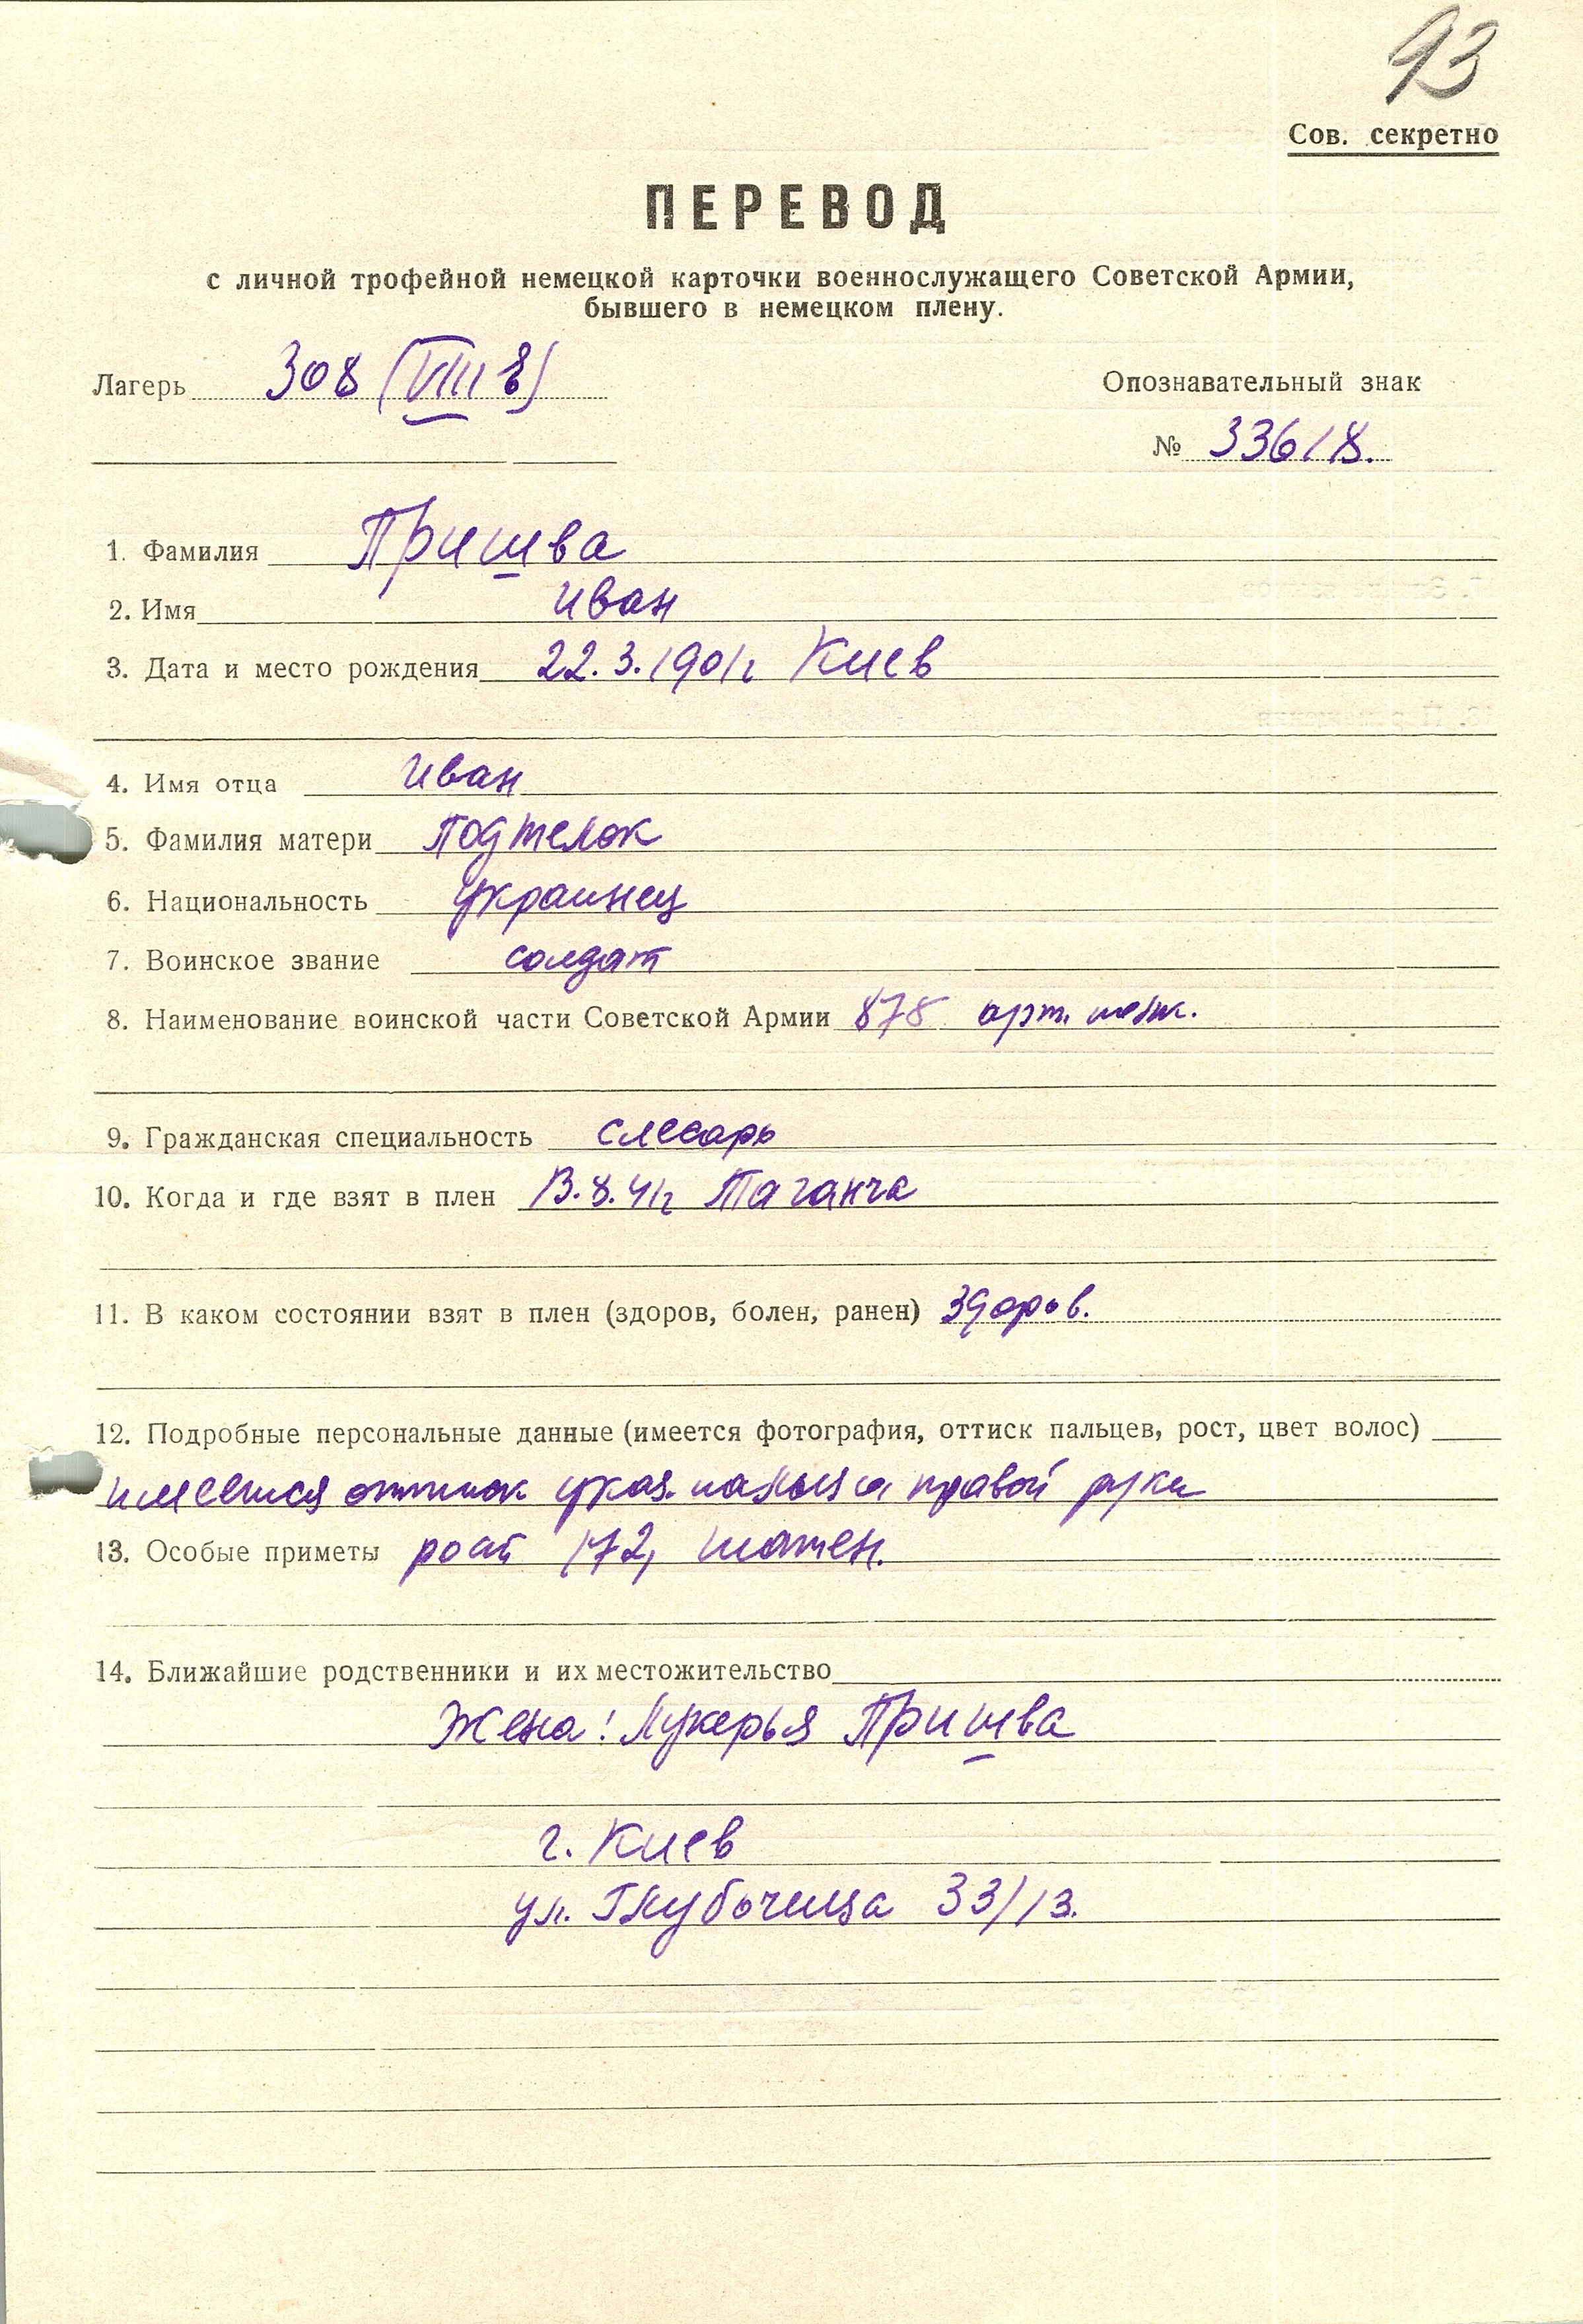 93
Сов. секретно
ПЕРЕВОД
с личной трофейной немецкой карточки военнослужащего Советской Армии,
бывшего в немецком плену.
Лагерь 308 (VIII Е)
Опознавательный знак
№ 33618.
1. Фамилия Пришва
2. Имя Иван
3. Дата и место рождения 22.3.1901г Киев
4. Имя отца Иван
5. Фамилия матери Подтелок
6. Национальность украинец
7. Воинское звание солдат
8. Наименование воинской части Советской Армии 878 арт.
9. Гражданская специальность слесарь
10. Когда и где взят в плен 13.8.41г Таганча
11. В каком состоянии взят в плен (здоров, болен, ранен) здоров.
12. Подробные персональные данные (имеется фотография, оттиск пальцев, рост, цвет волос)
имеется оттиск указ. пальца правой руки
13. Особые приметы рост 172, шатен.
14. Ближайшие родственники и их местожительство
Жена: Лукерья Пришва
г. Киев
ул. Глубочица 33/13.